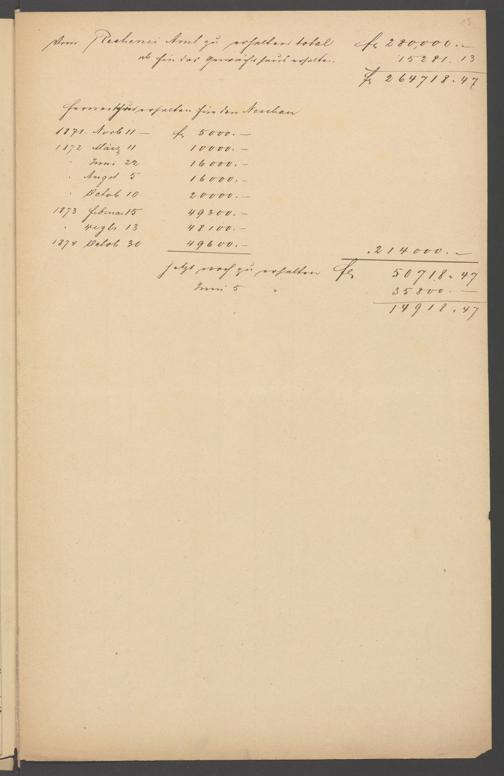 13
Vom Rechenei Amt zu erhalten total fr 280,000.—
ab für das Gewächshaus erhalten. 15281.13
fr 264718.47
erhalten für den Neubau
1871 Novb 11 — fr 5000.—
1872 März 11 10000.—
" Juni 22 16000.—
" Augst 5 16000.—
" Octob 10 20000.—
1873 Februar 15 49300.—
" 13 48100.—
1874 Octob 30 49600.—
214000.—
Jetzt noch zu erhalten fr 50718.47
Juni 5 " 35800.—
14918.47